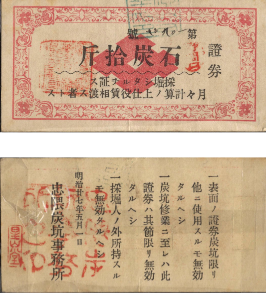 第 號
證券
石炭拾斤
採堀シタル証トス
月々計算ノ上仕役賃相渡ス者トス
一表面ノ證券炭坑限リ
他ニ使用スルモ無効
タルヘシ
一炭坑修業ニ至レハ此
證券ハ其節限リ無効
タルヘシ
一採堀人ノ外所持スル
モ無効タルヘシ
明治廿七年五月一日
忠隈炭坑事務所